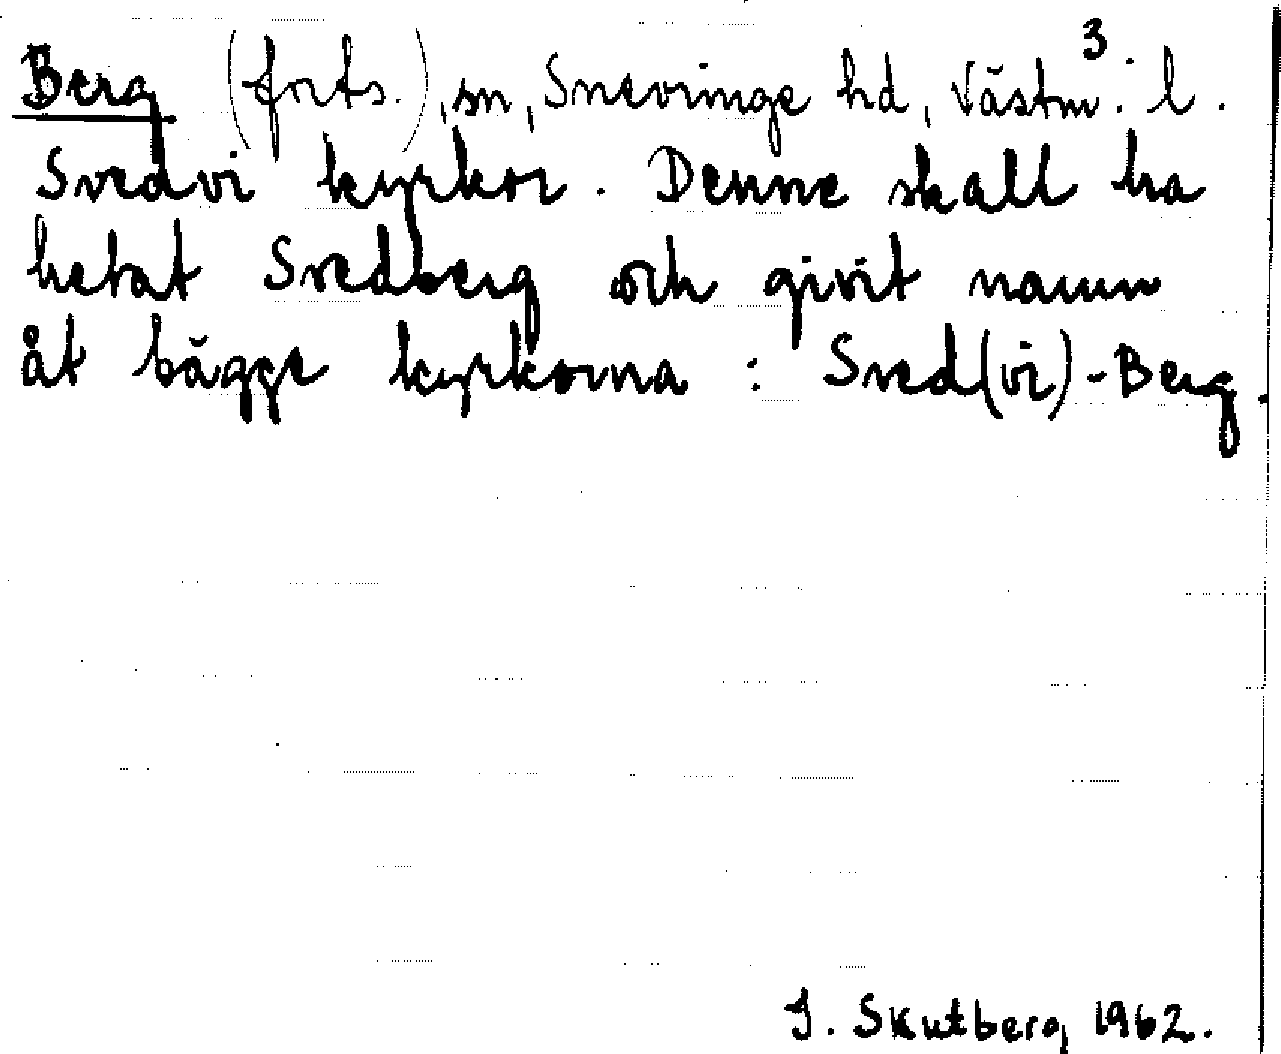 3
Berg (forts.), sn, Snevringe hd, Västm. l.
Svedvi kyrkor. Denne skall ha
hetat Svedberg och givit namn
åt bägge kyrkorna: Sved(vi)-Berg.
I. Skutberg 1962.